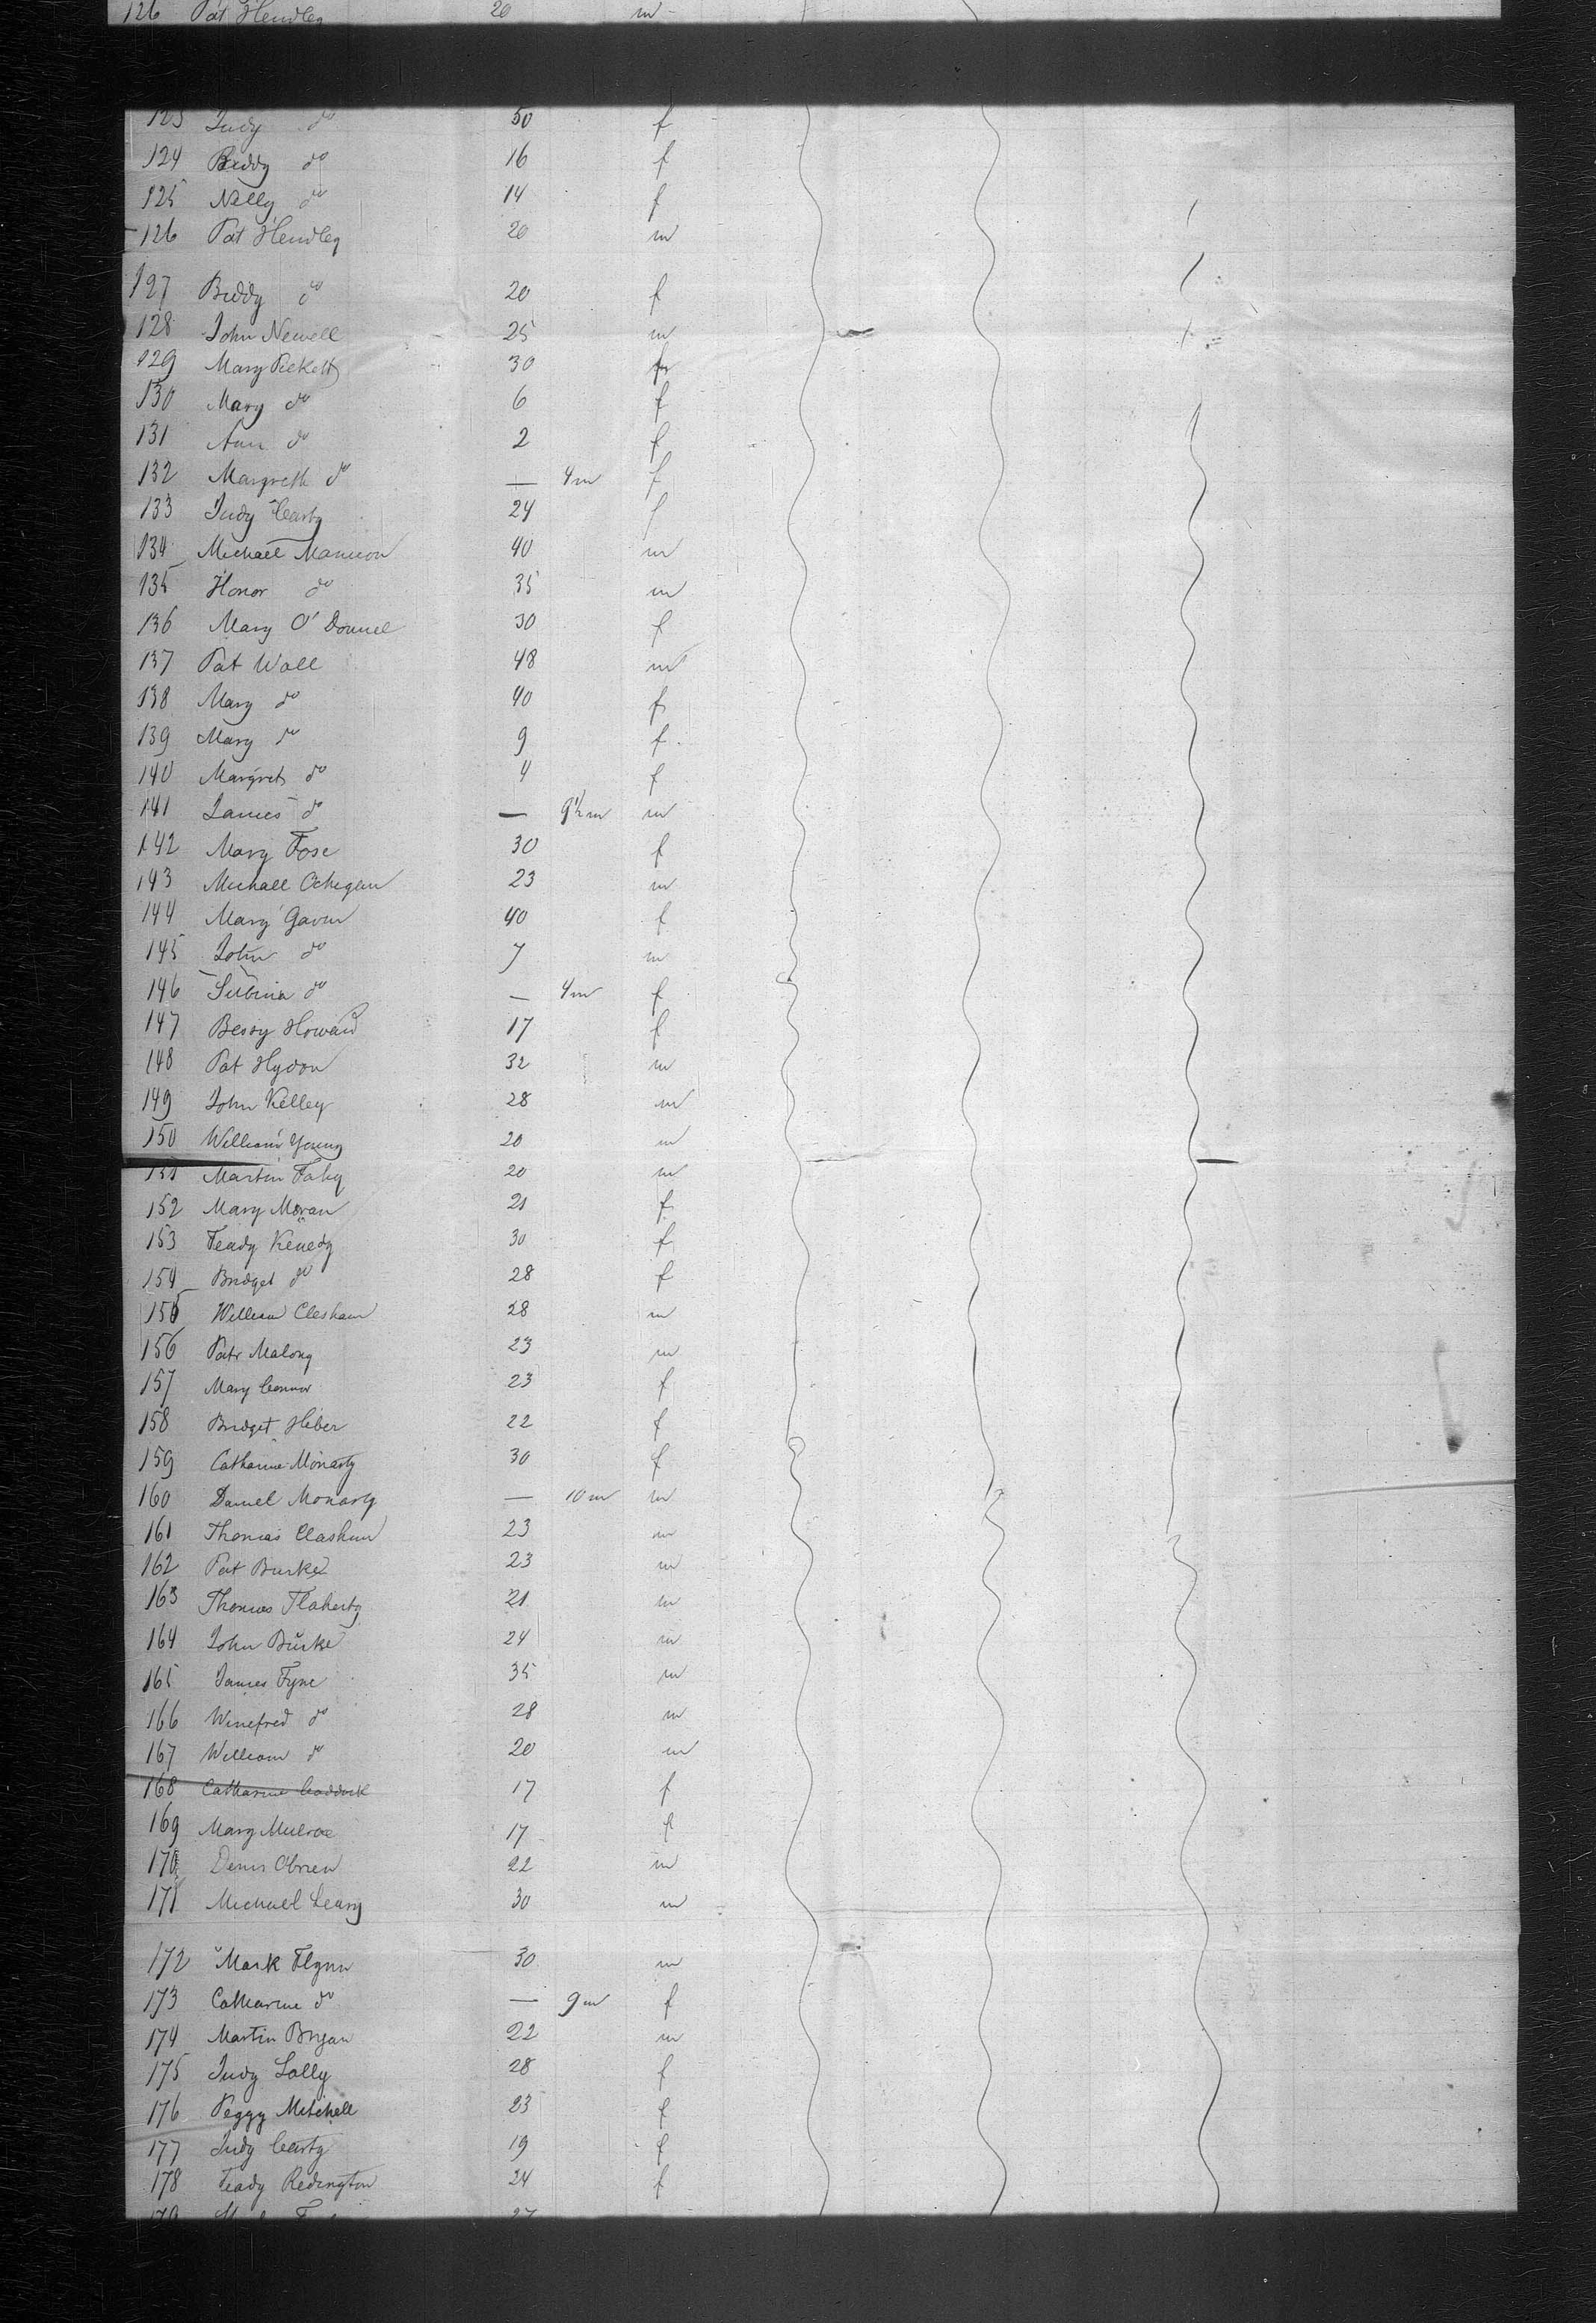 126 Pat Hendley 20 m
123 Judy do 50 f
124 Biddy do 16 f
125 Nelly do 14 f
126 Pat Hendley 20 m
127 Biddy do 20 f
128 John Newell 25 m
129 Mary Pickett 30 f
130 Mary do 6 f
131 Ann do 2 f
132 Margreth do — 4m f
133 Judy Carty 24 f
134 Michael Mannion 40 m
135 Honor do 35 m
136 Mary O'Donnel 30 f
137 Pat Wall 48 m
138 Mary do 40 f
139 Mary do 9 f
140 Margret do 4 f
141 James do — 9½m m
142 Mary Fose 30 f
143 Michael 23 m
144 Mary Gavin 40 f
145 John do 7 m
146 Subina do — 4m f
147 Bessy Howard 17 f
148 Pat Hydon 32 m
149 John Kelley 28 m
150 William Young 20 m
151 Martin Fahy 20 m
152 Mary Moran 21 f
153 Teady Kenedy 30 f
154 Bridget do 28 f
155 William Clesham 28 m
156 Patr Malony 23 m
157 Mary Connor 23 f
158 Bridget Heber 22 f
159 Catharine Monarty 30 f
160 Daniel Monarty — 10m m
161 Thomas Clashum 23 m
162 Pat Burke 23 m
163 Thomas Flaherty 21 m
164 John Burke 24 m
165 James Fyne 35 m
166 Winefred do 28 m
167 William do 20 m
168 Catharine Coddick 17 f
169 Mary Mulroe 17 f
170 Denis Obrien 22 m
171 Michael Leary 30 m
172 Mark Flynn 30 m
173 Catharine do — 9m f
174 Martin Bryan 22 m
175 Judy Lally 28 f
176 Peggy Mitchell 23 f
177 Judy Carty 19 f
178 Teady Redington 24 f
179 27